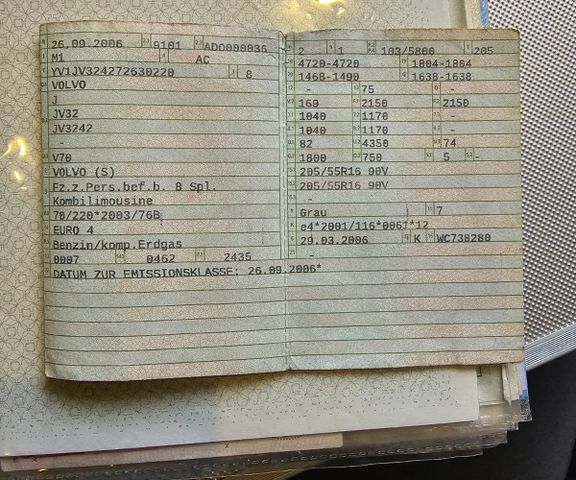 26.09.2006 9101 ADO000036
M1 AC
YV1JV324272630220 8
VOLVO
J
JV32
JV3242
-
V70
VOLVO (S)
Fz.z.Pers.bef.b. 8 Spl.
Kombilimousine
70/220*2003/76B
EURO 4
Benzin/komp.Erdgas
0007 0462 2435
DATUM ZUR EMISSIONSKLASSE: 26.09.2006*
2 1 103/5800 205
4720-4720 1804-1864
1468-1490 1638-1638
- 75 -
169 2150 2150
1040 1170 -
1040 1170 -
82 4350 74
1800 750 5 -
205/55R16 90V
205/55R16 90V
-
Grau 7
e4*2001/116*0061*12
29.03.2006 K WC738280
-